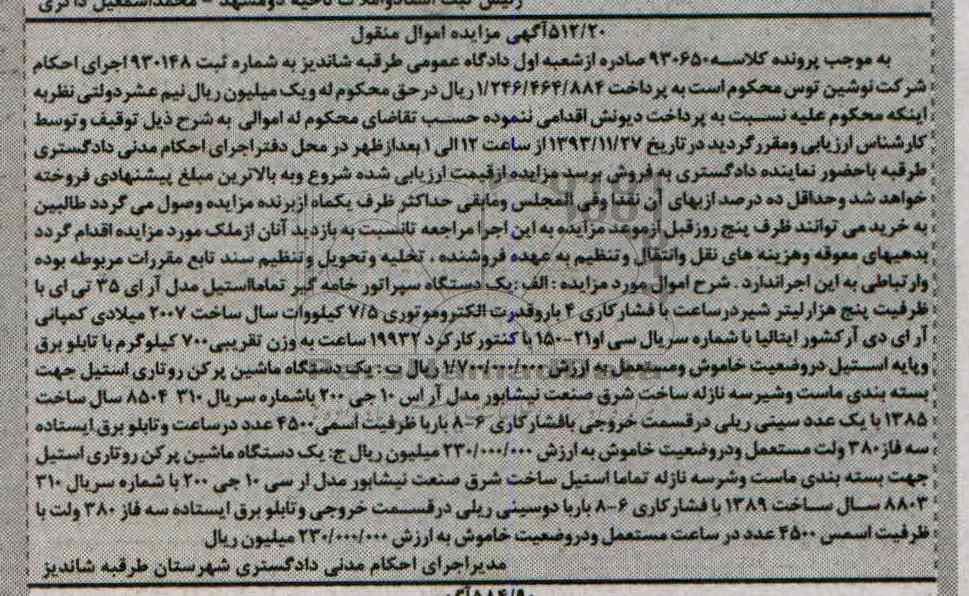 رئیس ثبت اسناد و املاک ناحیه دو مشهد - محمداسمعیل ذاکری
۵۱۲/۲۰آگهی مزایده اموال منقول
به موجب پرونده کلاسه۹۳۰۶۵۰ صادره ازشعبه اول دادگاه عمومی طرقبه شاندیز به شماره ثبت ۹۳۰۱۴۸ اجرای احکام
شرکت نوشین توس محکوم است به پرداخت ۱/۲۴۶/۴۶۴/۸۸۴ ریال درحق محکوم له ویک میلیون ریال نیم عشردولتی نظربه
اینکه محکوم علیه نسبت به پرداخت دیونش اقدامی ننموده حسب تقاضای محکوم له اموالی به شرح ذیل توقیف وتوسط
کارشناس ارزیابی ومقررگردید درتاریخ ۱۳۹۳/۱۱/۲۷از ساعت ۱۲الی ۱ بعدازظهر در محل دفتراجرای احکام مدنی دادگستری
طرقبه باحضور نماینده دادگستری به فروش برسد مزایده ازقیمت ارزیابی شده شروع وبه بالاترین مبلغ پیشنهادی فروخته
خواهد شد وحداقل ده درصد ازبهای آن نقدا وفی المجلس ومابقی حداکثر ظرف یکماه ازبرنده مزایده وصول می گردد طالبین
به خرید می توانند ظرف پنج روزقبل ازموعد مزایده به این اجرا مراجعه تانسبت به بازدید آنان ازملک مورد مزایده اقدام گردد
بدهیهای معوقه وهزینه های نقل وانتقال وتنظیم به عهده فروشنده ، تخلیه وتحویل وتنظیم سند تابع مقررات مربوطه بوده
وارتباطی به این اجراندارد . شرح اموال مورد مزایده : الف :یک دستگاه سپراتور خامه گیر تمامااستیل مدل آر ای ۳۵ تی ای با
ظرفیت پنج هزارلیتر شیردرساعت با فشارکاری ۴ باروقدرت الکتروموتوری ۷/۵ کیلووات سال ساخت ۲۰۰۷ میلادی کمپانی
آر ای دی آرکشور ایتالیا با شماره سریال سی او۲۱-۱۵۰ با کنتورکارکرد ۱۹۹۳۲ ساعت به وزن تقریبی۷۰۰ کیلوگرم با تابلو برق
وپایه استیل دروضعیت خاموش ومستعمل به ارزش ۱/۷۰۰/۰۰۰/۰۰۰ ریال ب : یک دستگاه ماشین پرکن روتاری استیل جهت
بسته بندی ماست وشیرسه نازله ساخت شرق صنعت نیشابور مدل آر اس ۱۰ جی ۲۰۰ باشماره سریال ۳۱۰ ۸۵۰۴ سال ساخت
۱۳۸۵ با یک عدد سینی ریلی درقسمت خروجی بافشارکاری ۶-۸ باربا ظرفیت اسمی۴۵۰۰ عدد درساعت وتابلو برق ایستاده
سه فاز۳۸۰ ولت مستعمل ودروضعیت خاموش به ارزش ۲۳۰/۰۰۰/۰۰۰ میلیون ریال ج: یک دستگاه ماشین پرکن روتاری استیل
جهت بسته بندی ماست وشرسه نازله تماما استیل ساخت شرق صنعت نیشابور مدل ار سی ۱۰ جی ۲۰۰ با شماره سریال ۳۱۰
۸۸۰۳ سال ساخت ۱۳۸۹ با فشارکاری ۶-۸ باربا دوسینی ریلی درقسمت خروجی وتابلو برق ایستاده سه فاز ۳۸۰ ولت با
ظرفیت اسمس ۴۵۰۰ عدد در ساعت مستعمل ودروضعیت خاموش به ارزش ۲۳۰/۰۰۰/۰۰۰ میلیون ریال
مدیراجرای احکام مدنی دادگستری شهرستان طرقبه شاندیز